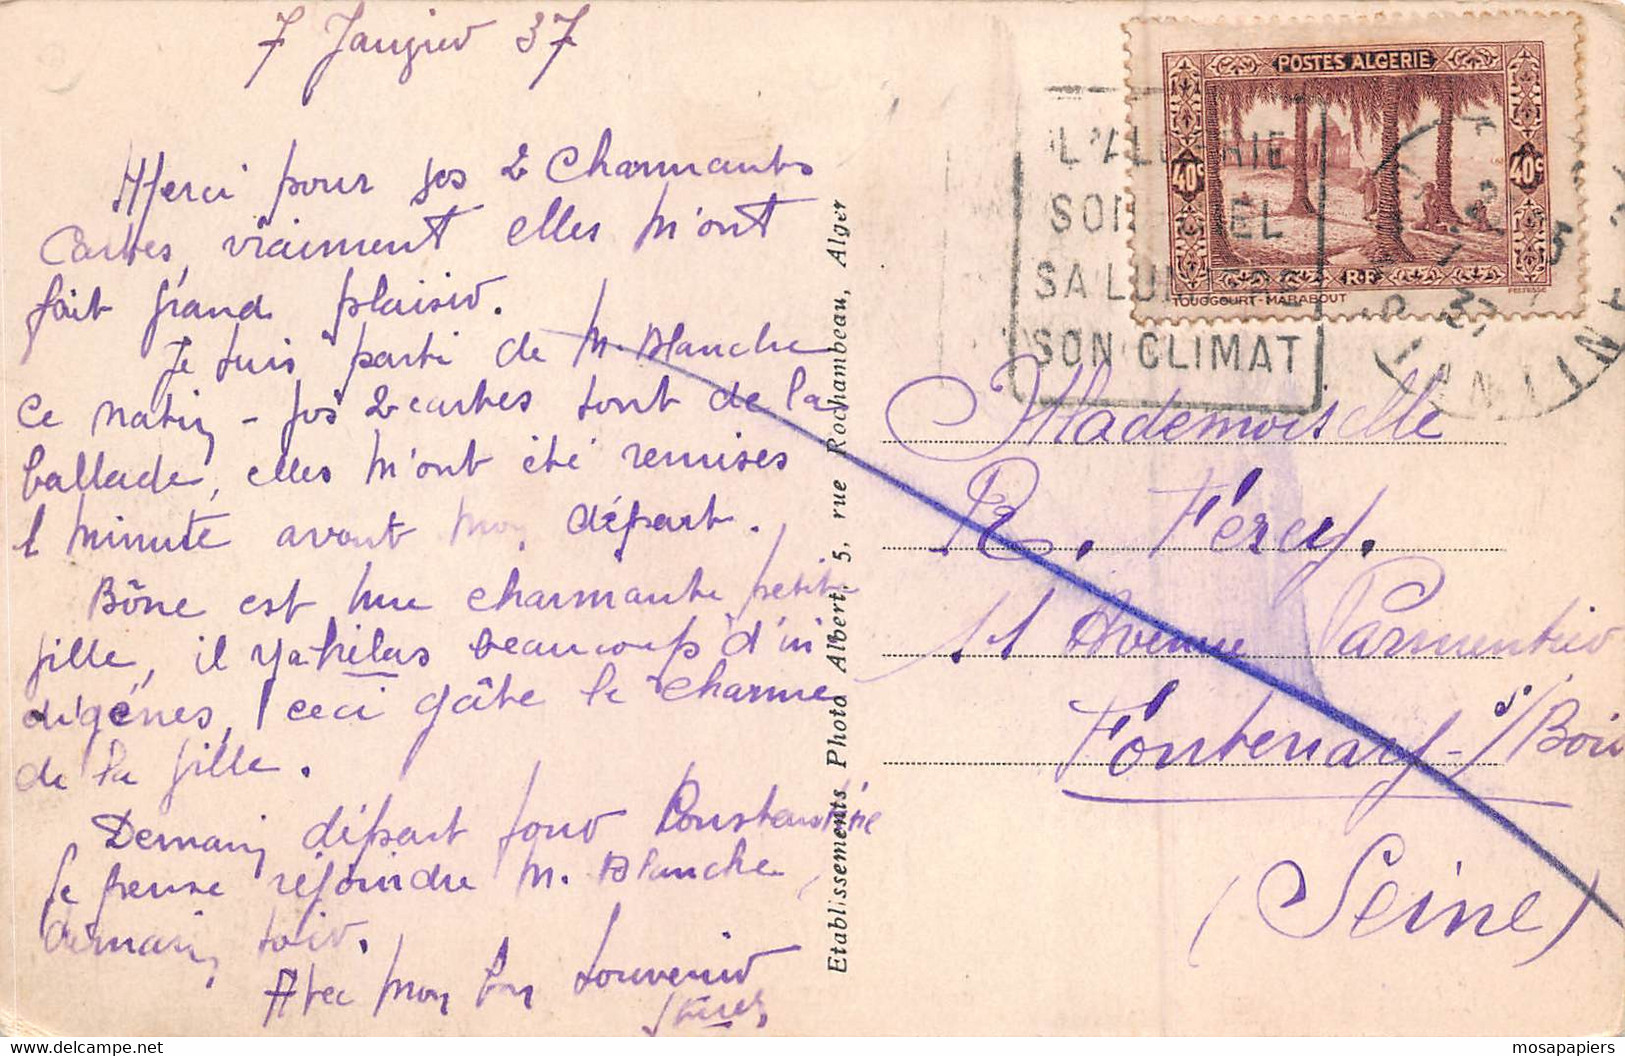 7 Janvier 37
Merci pour vos 2 Charmants
Cartes, vraiment elles m'ont
fait grand plaisir.
Je suis parti de M. Blanche
ce matin - vos 2 cartes sont de la
ballade, elles m'ont été remises
1 minute avant mon départ.
Bône est une charmante petite
fille, il y a hélas beaucoup d'in
digénes, ceci gâte le charme
de la fille.
Demain départ pour Constantine
Je pense rejoindre M. Blanche,
demain soir.
Avec mon bon souvenir
Etablissements Photo Albert, 5, rue Rochambeau, Alger
POSTES ALGERIE
40c 40c
RF
TOUGGOURT-MARABOUT
L'ALGERIE
SON CIEL
SA LUMIERE
SON CLIMAT
CONSTANTINE
37
Mademoiselle
R. Férey.
11 Avenue Parmentier
Fontenay-s/Bois
(Seine)
mosapapiers